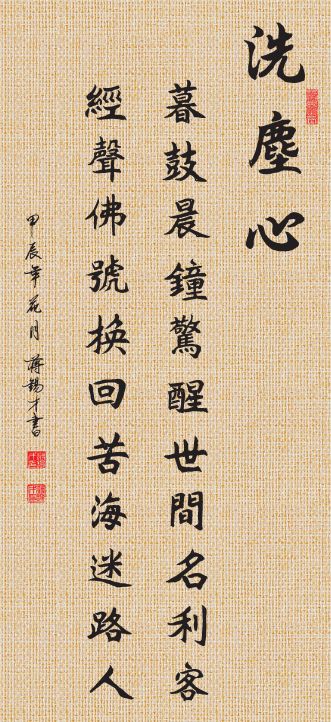 洗塵心
暮鼓晨鐘驚醒世間名利客
經聲佛號換回苦海迷路人
甲辰年花月蔣錫才書